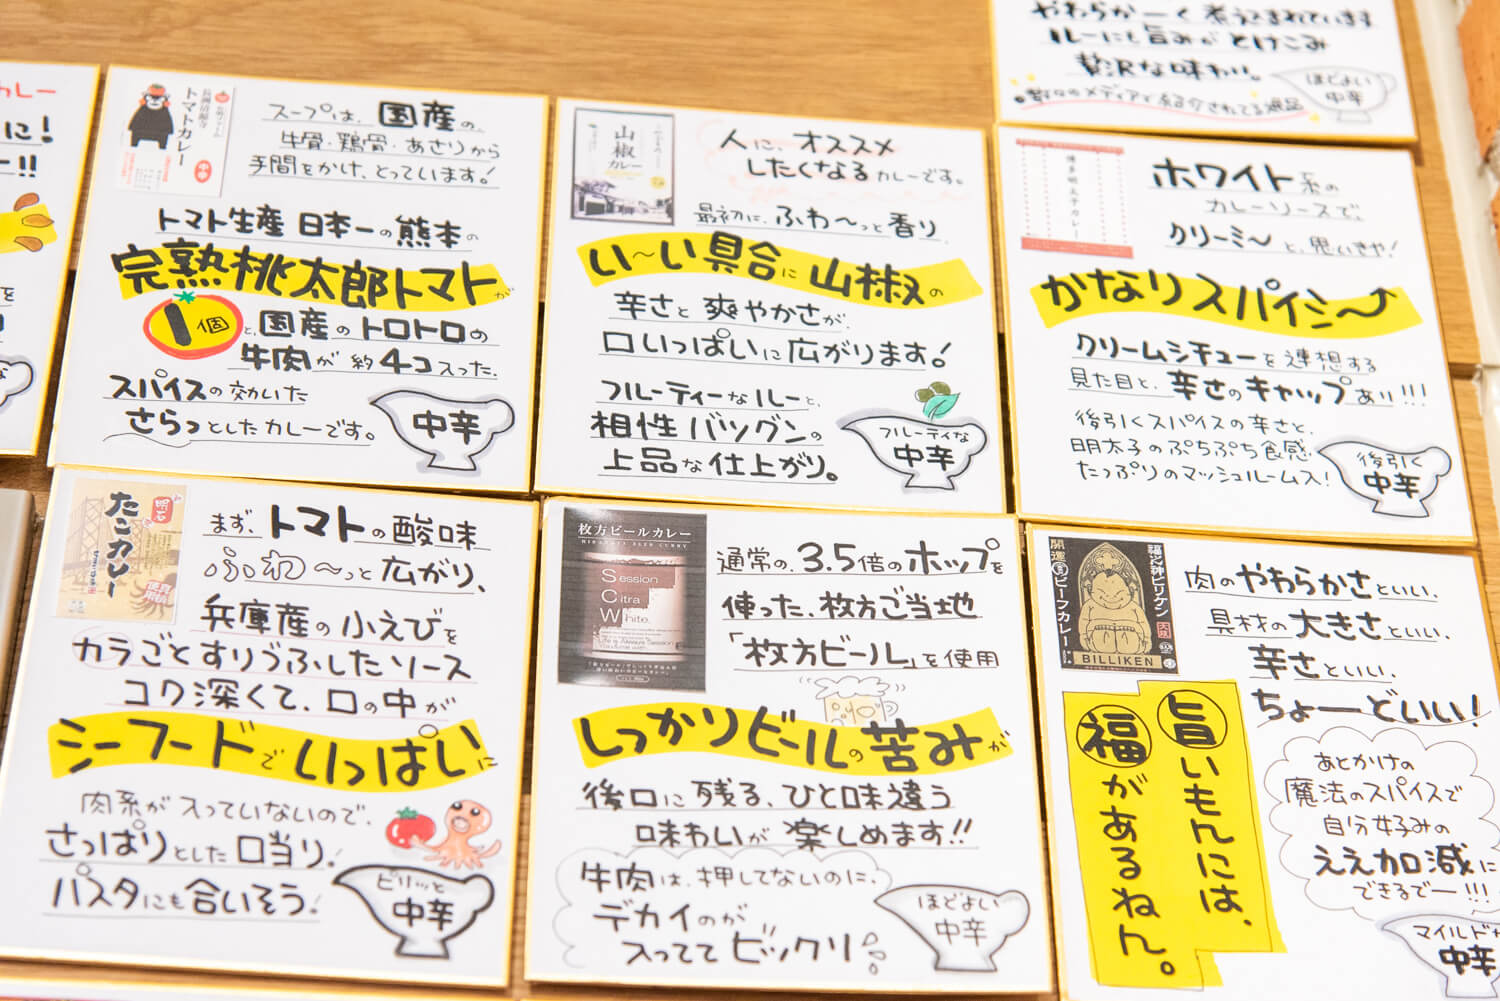 カレー
に!
ー!!
を
スープは、国産の、
牛骨・鶏骨・あさりから
手間をかけ、とっています!
トマト生産 日本一の熊本の
完熟桃太郎トマトが
1個と、国産のトロトロの
牛肉が 約4コ入った、
スパイスの効いた
さらっとしたカレーです。
中辛
トマトカレー
中辛
山椒
カレー
人に、オススメ
したくなるカレーです。
最初に、ふわ〜っと香り、
い〜い具合に山椒の
辛さと爽やかさが、
口いっぱいに広がります!
フルーティーなルーと、
相性バツグンの
上品な仕上がり。
フルーティな
中辛
やわらかーく煮こまれています
ルーにも旨みがとけこみ
贅沢な味わい。
ほどよい
中辛
博多明太子カレー
ホワイト系の
カレーソースで、
クリーミ〜と、思いきや!
かなりスパイシ〜
クリームシチューを連想する
見た目と、辛さのキャップあり!!!
後引くスパイスの辛さと、
明太子のぷちぷち食感
たっぷりのマッシュルーム入!
後引く
中辛
明石
たこカレー
まず、トマトの酸味
ふわ〜っと広がり、
兵庫産の小えびを
カラごとすりつぶしたソース
コク深くて、口の中が
シーフードでいっぱいに
肉系が入っていないので、
さっぱりとした口当り!
パスタにも合いそう!
ピリッと
中辛
枚方ビールカレー
HIRAKATA BEER CURRY
Session
Citra
White.
通常の、3.5倍のホップを
使った、枚方ご当地
「枚方ビール」を使用
しっかりビールの苦みが
後口に残る、ひと味違う
味わいが楽しめます!!
牛肉は、押してないのに、
デカイのが
入っててビックリ
ほどよい
中辛
福の神ビリケン
開運 ビーフカレー
BILLIKEN
肉のやわらかさといい、
具材の大きさといい、
辛さといい、
ちょーどいい!
旨いもんには、
福があるねん。
あとかけの
魔法のスパイスで
自分好みの
ええ加減に
できるでー!!!
マイルドな
中辛